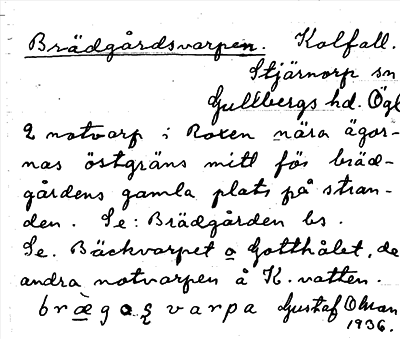 Brädgårdsvarpen. Kolfall.
Stjärnorp sn
Gullbergs hd. Ögl
2 notvarp i Roxen nära ägor-
nas östgräns mitt för bräd-
gårdens gamla plats på stran-
den. Se: Brädgården bs.
Se. Bäckvarpet o Gotthålet, de
andra notvarpen å K. vatten.
Gustaf Oman
1936.